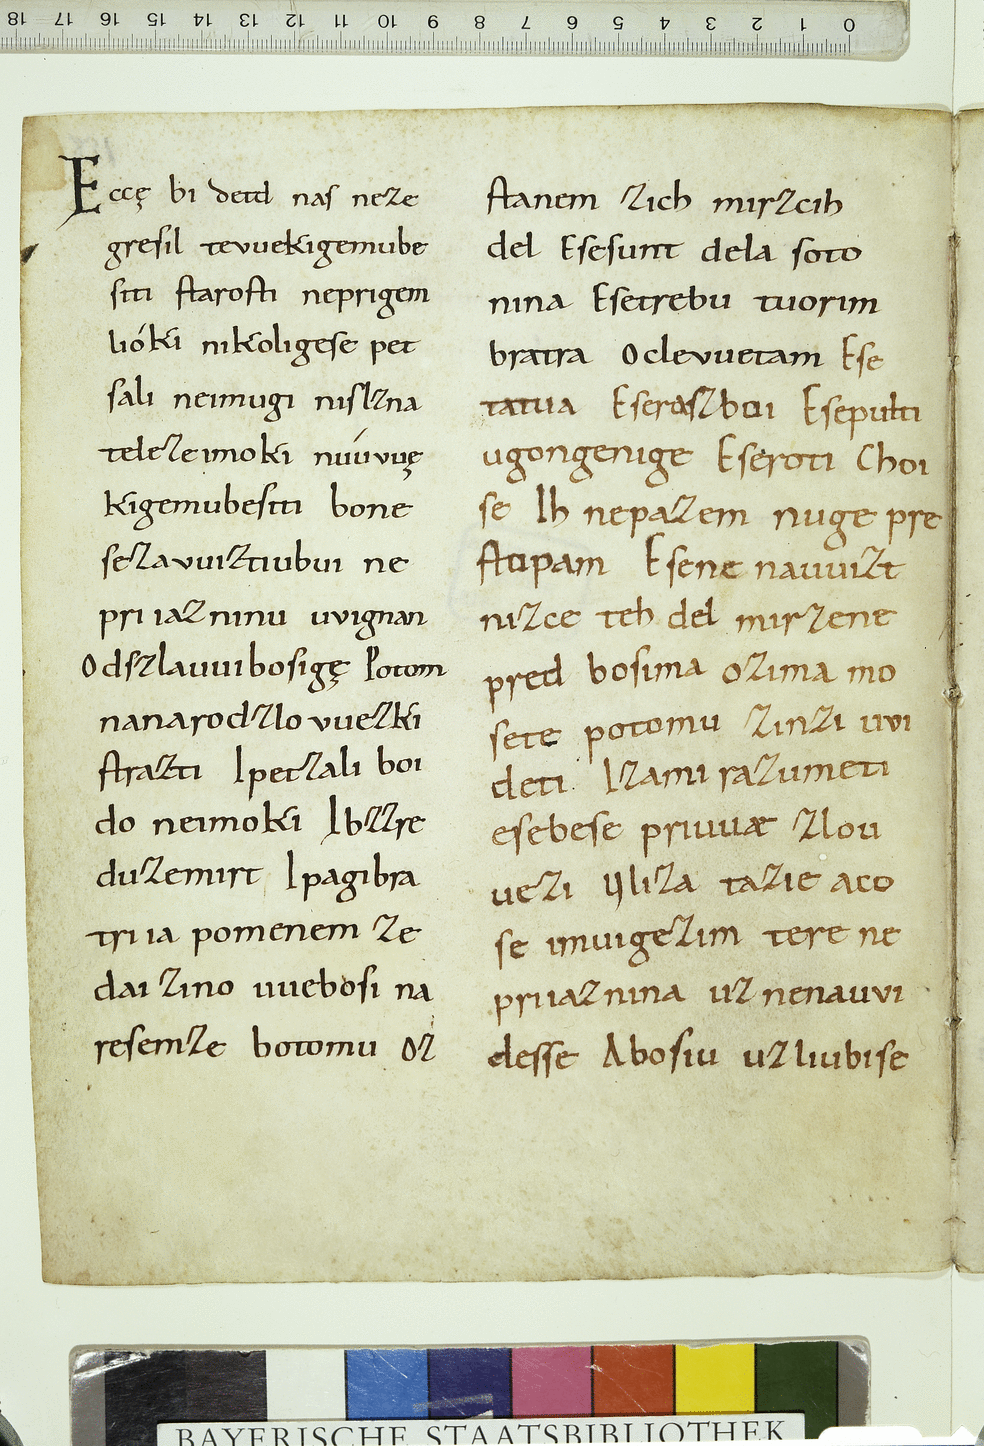 18 17 16 15 14 13 12 11 10 9 8 7 6 5 4 3 2 1 0
Eccę bi detd nas neze
gresil tevuekigemube
siti starosti neprigem
lióki nikoligese pet
sali neimugi nislzna
telezeimoki núúvuę
kigemubesiti bone
sezavuiztiubui ne
priiazninu uvignan
Odszlauuibosigę Potom
nanarodzlovuezki
strazti Ipetzali boi
do neimoki Ibzzre
duzemirt Ipagibra
triia pomenem ze
dai zino uuebosi na
resemze botomu oz
stanem zich mirzcih
del Esesunt dela soto
nina Esetrebu tuorim
bratra Oclevuetam Ese
tatua Eserasboi Esepulti
ugongenige Eseroti Choi
se Ih nepazem nuge pre
stopam Esene nauuizt
nizce teh del mirzene
pred bosima ozima mo
sete potomu zinzi uvi
deti Izami razumeti
esebese priuuæ zlou
uezi Iliza tazie aco
se imuigezim tere ne
priiaznina uz nenauvi
desse Abosiu uzliubise
BAYERISCHE STAATSBIBLIOTHEK